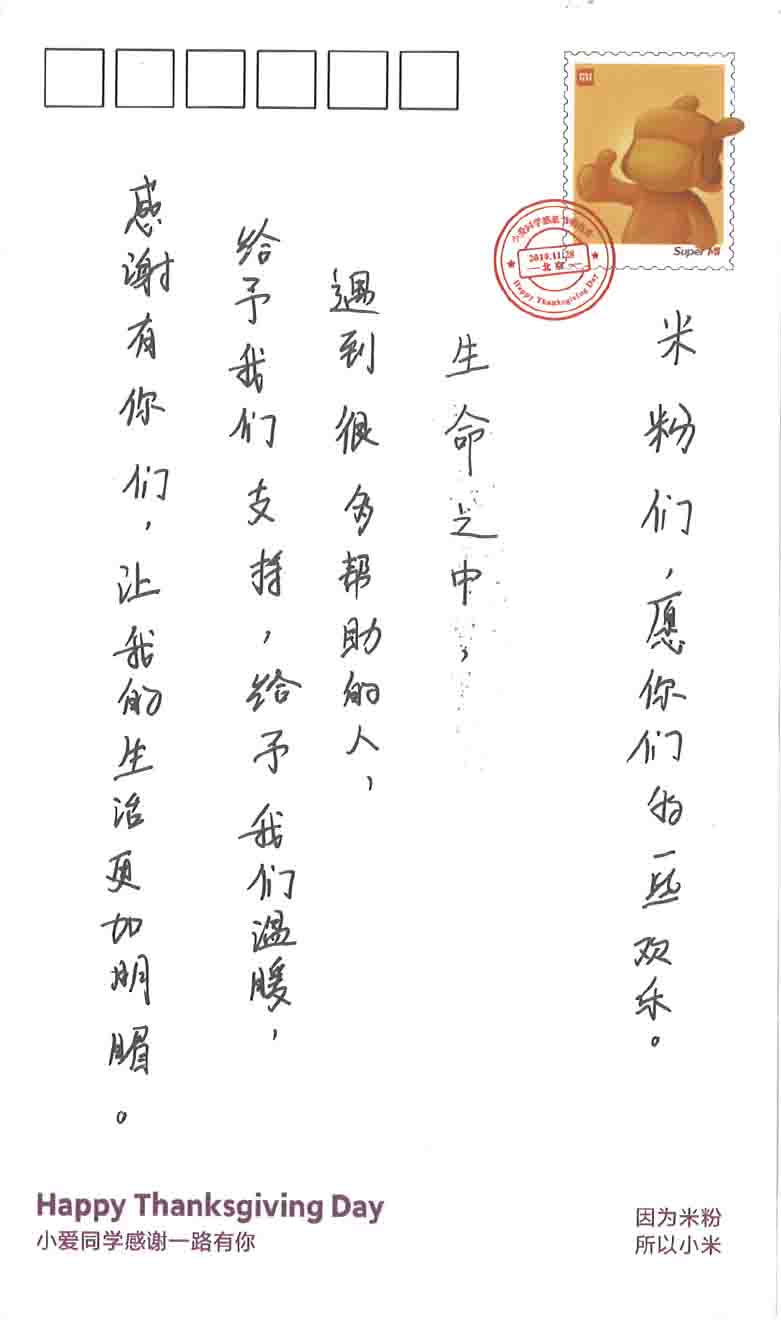 MI
Super MI
2019.11.28
北京
Happy Thanksgiving Day
米粉们，愿你们的一些欢乐。
生命之中，
遇到很多帮助的人，
给予我们支持，给予我们温暖，
感谢有你们，让我的生活更加明媚。
Happy Thanksgiving Day
小爱同学感谢一路有你
因为米粉
所以小米